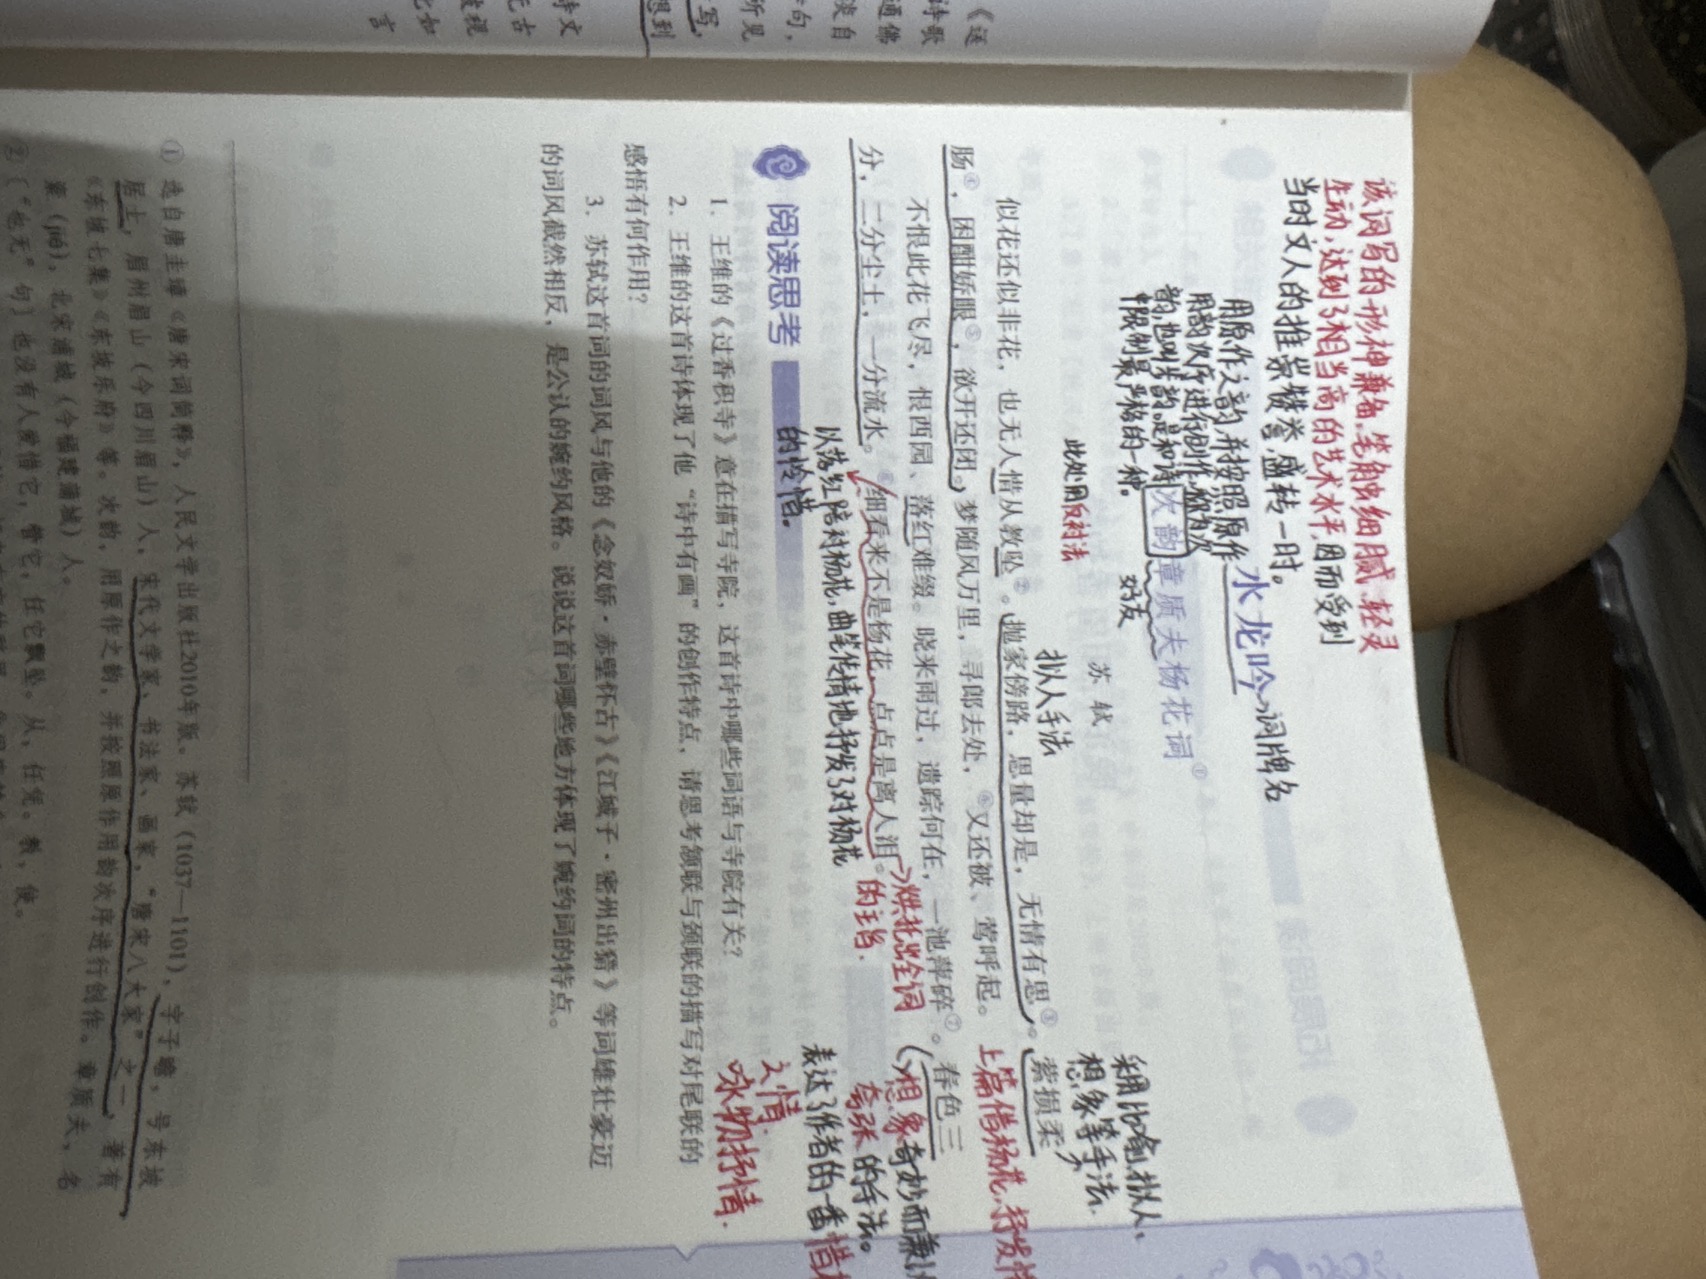 《送
诗歌
通佛
谈自
句，
所见
写，
想到
诗文
元古
被视
化如
言
该词写的形神兼备、笔触细腻、轻灵
生动，达到了相当高的艺术水平，因而受到
当时文人的推崇赞誉，盛转一时。
水龙吟→词牌名
用原作之韵，并按照原作
用韵次序进行创作，称为次
韵，也叫步韵，是和诗
中限制最严格的一种。
次韵章质夫杨花词①
好友
苏轼
此处用反衬法
拟人手法
采用比喻、拟人、
想象等手法.
似花还似非花，也无人惜从教坠②。抛家傍路，思量却是，无情有思③。萦损柔
肠④，困酣娇眼⑤，欲开还闭。梦随风万里，寻郎去处，⑥又还被、莺呼起。
上篇借杨花，抒发
不恨此花飞尽，恨西园、落红难缀。晓来雨过，遗踪何在，一池萍碎⑦。春色三
分，二分尘土，一分流水。细看来，不是杨花，点点是离人泪。
→烘托出全词
的主旨.
(→想象奇妙而兼
夸张的手法。
以落红陪衬杨花，曲笔传情地抒发了对杨花
的怜惜。
表达了作者的一番惜
之情.
咏物抒情.
阅读思考
1. 王维的《过香积寺》意在描写寺院，这首诗中哪些词语与寺院有关？
2. 王维的这首诗体现了他“诗中有画”的创作特点，请思考颔联与颈联的描写对尾联的
感悟有何作用？
3. 苏轼这首词的词风与他的《念奴娇·赤壁怀古》《江城子·密州出猎》等词雄壮豪迈
的词风截然相反，是公认的婉约风格。说说这首词哪些地方体现了婉约词的特点。
① 选自唐圭璋《唐宋词简释》，人民文学出版社2010年版。苏轼（1037—1101），字子瞻，号东坡
居士，眉州眉山（今四川眉山）人，宋代文学家、书法家、画家，“唐宋八大家”之一，著有
《东坡七集》《东坡乐府》等。次韵，用原作之韵，并按照原作用韵次序进行创作。章质夫，名
楶（jié），北宋浦城（今福建蒲城）人。
②〔“也无”句〕也没有人爱惜它，管它，任它飘坠。从，任凭。教，使。